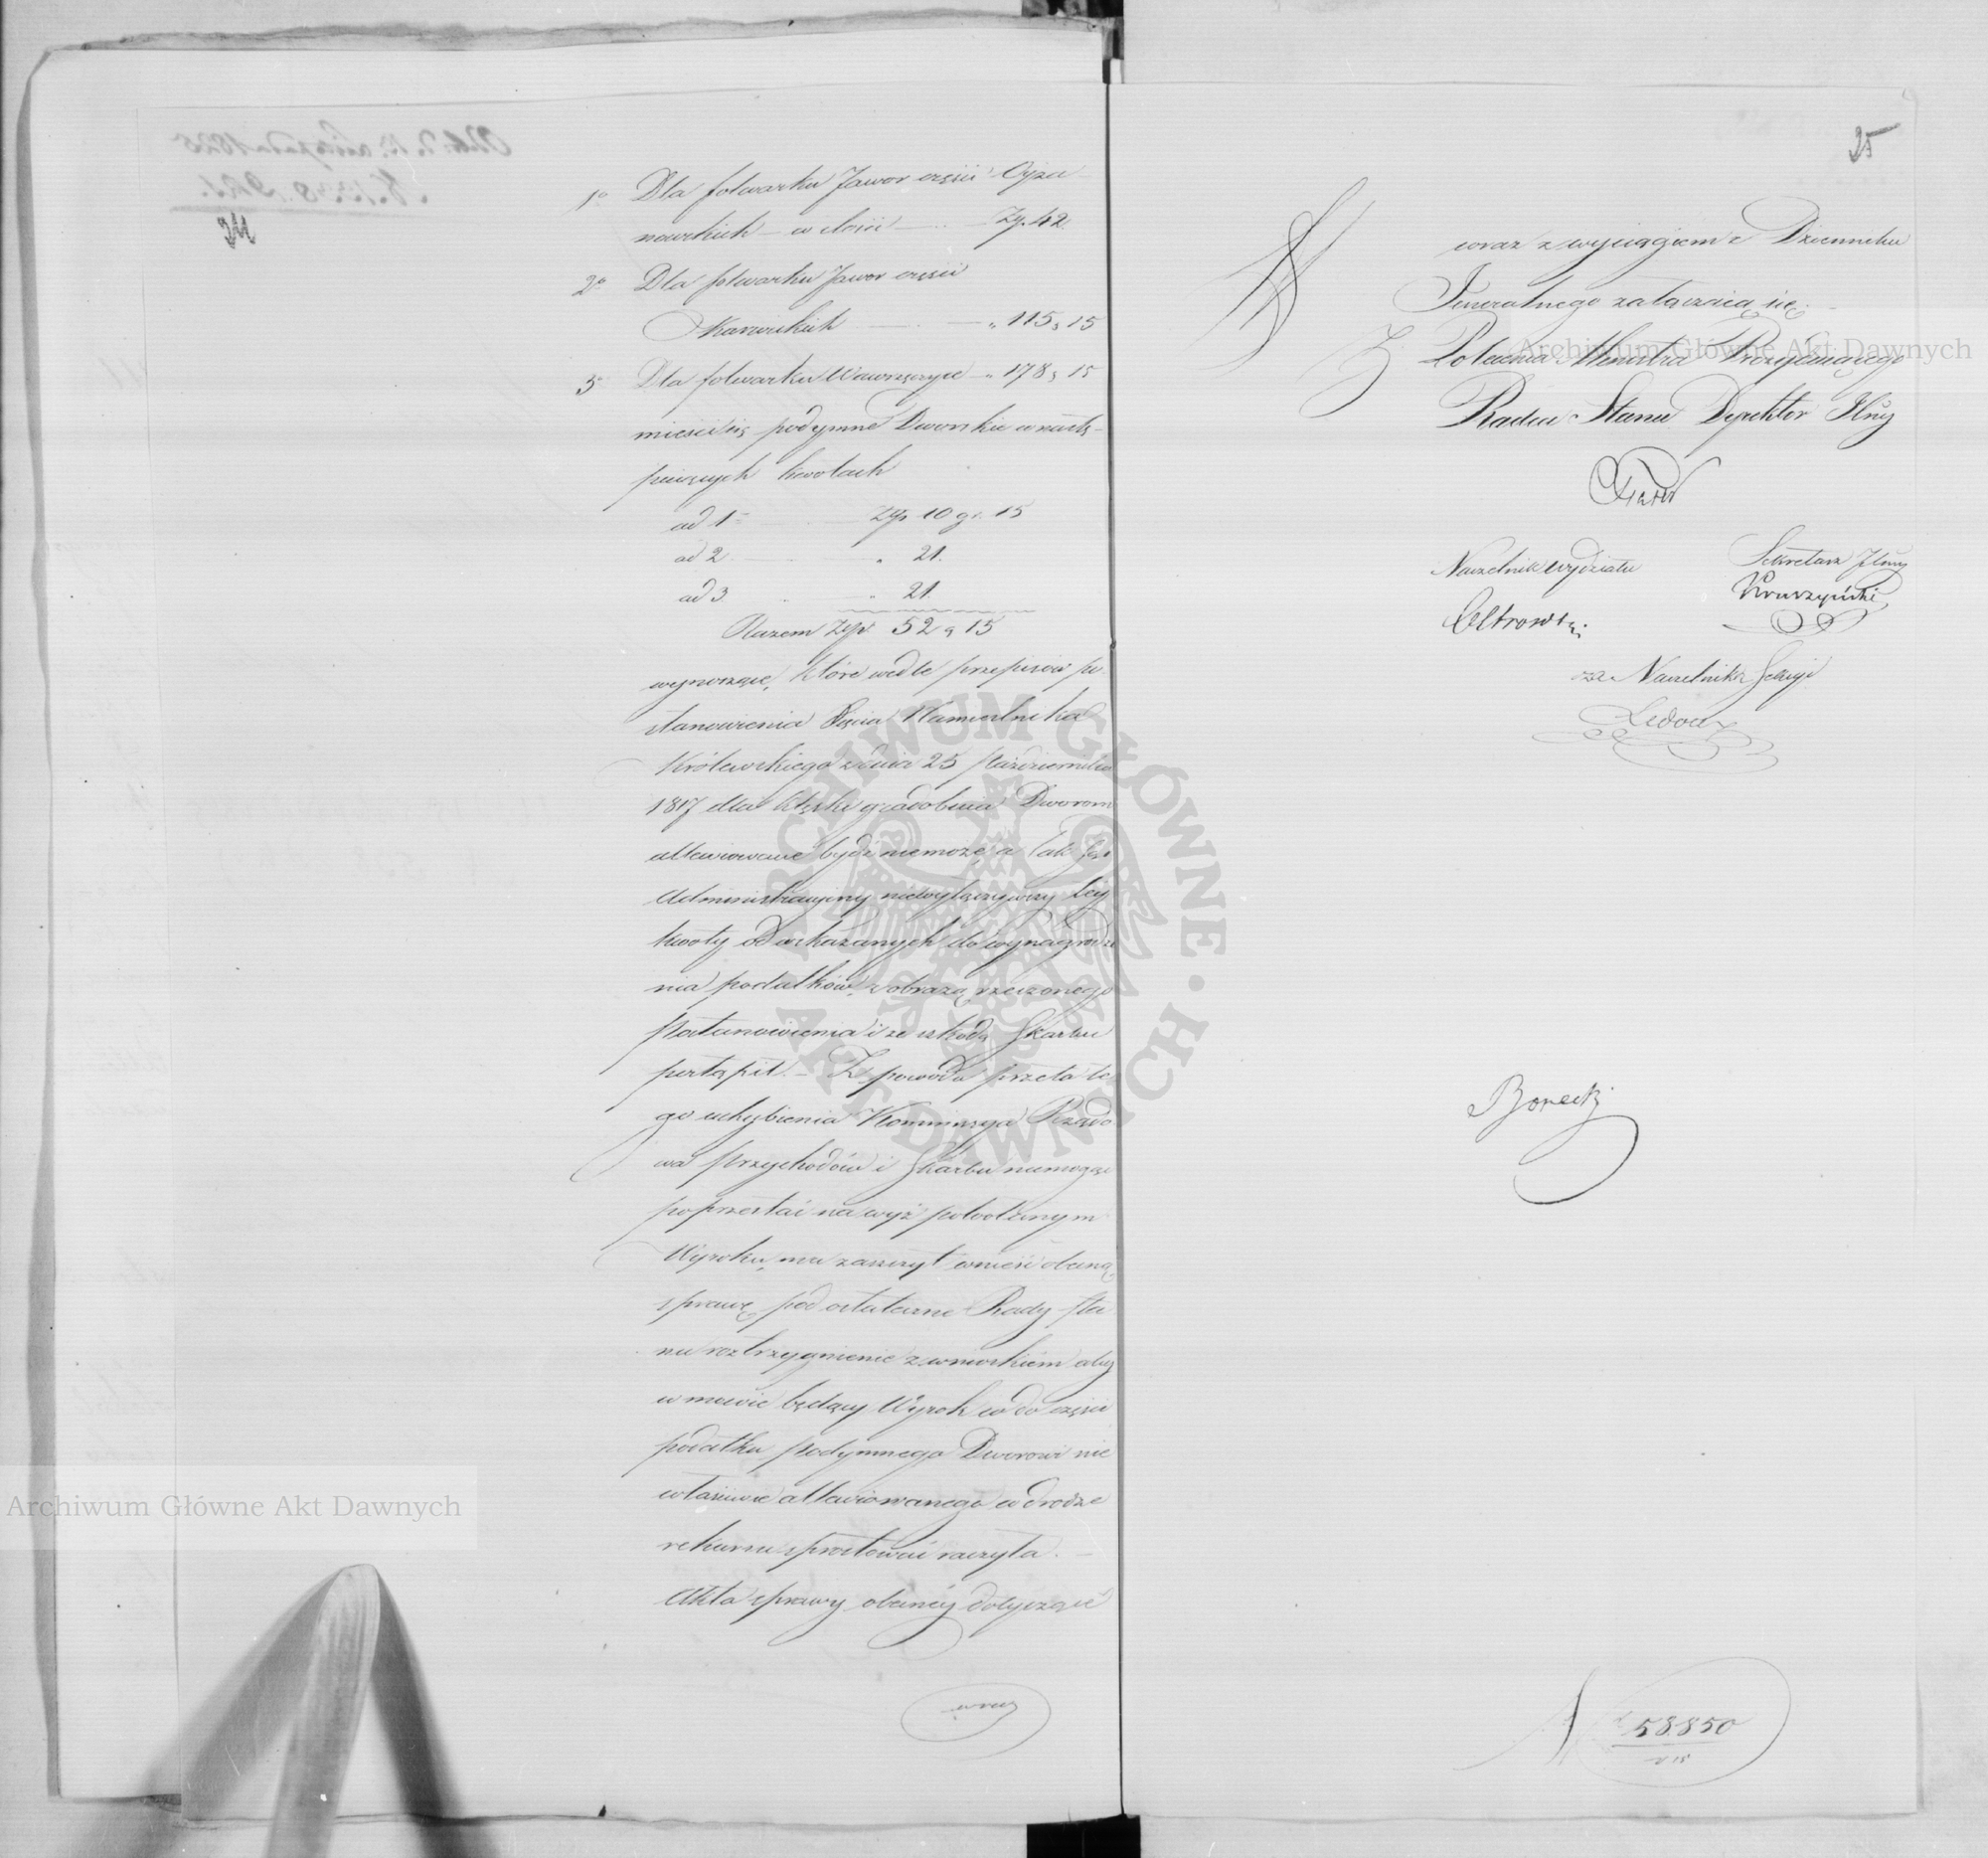 1o Dla folwarku Jawor części Ciza-
nowskich – w ilości – Zp. 42
2o Dla folwarku Jawor części
Skarzewskich – " 115, 15
3 Dla folwarku Wawrzęczyce – " 178, 15
mieści się podymne Dworskie w nastę-
puiących kwotach
ad 1 Złp 10 gr. 15
ad 2 " 21.
ad 3 " 21.
Razem Złp. 52, 15
wynoszące, które wedle przepisów po-
stanowienia Xięcia Namiestnika
Królewskiego z dnia 25 Października
1817 dla klęski gradobicia Dworom
allewiowane bydź niemoże, a tak Sąd
Administracyiny niewyłączywszy tey
kwoty od wskazanych do wynagrodze
nia podatków, z obrazą rzeczonego
postanowienia i ze szkodą Skarbu
postąpił. – Z powodu przeto te
go uchybienia Kommissya Rządo
wa Przychodów i Skarbu niemogąc
poprzestać na wyż powołanym
Wyroku, ma zaszczyt wnieść obecną
sprawę pod ostateczne Rady Sta
nu roztrzygnienie z wnioskiem aby
w mowie będący Wyrok co do części
podatku podymnego Dworowi nie
właściwie allewiowanego w drodze
rekursu sprostować raczyła. –
Akta sprawy obecnéy dotyczące
wraz
24
25
wraz z wyciągiem z Dziennika
Jeneralnego załączaią się. –
Z Polecenia Ministra Prezyduiącego
Radca Stanu Dyrektor Jlny
Naczelnik Wydziału
Sekretarz Jlny
Kruszyński
za Naczelnika Sekcyi
Ledoux
Borecki
N 58850
Archiwum Główne Akt Dawnych
Archiwum Główne Akt Dawnych
ARCHIWUM GŁÓWNE AKT DAWNYCH